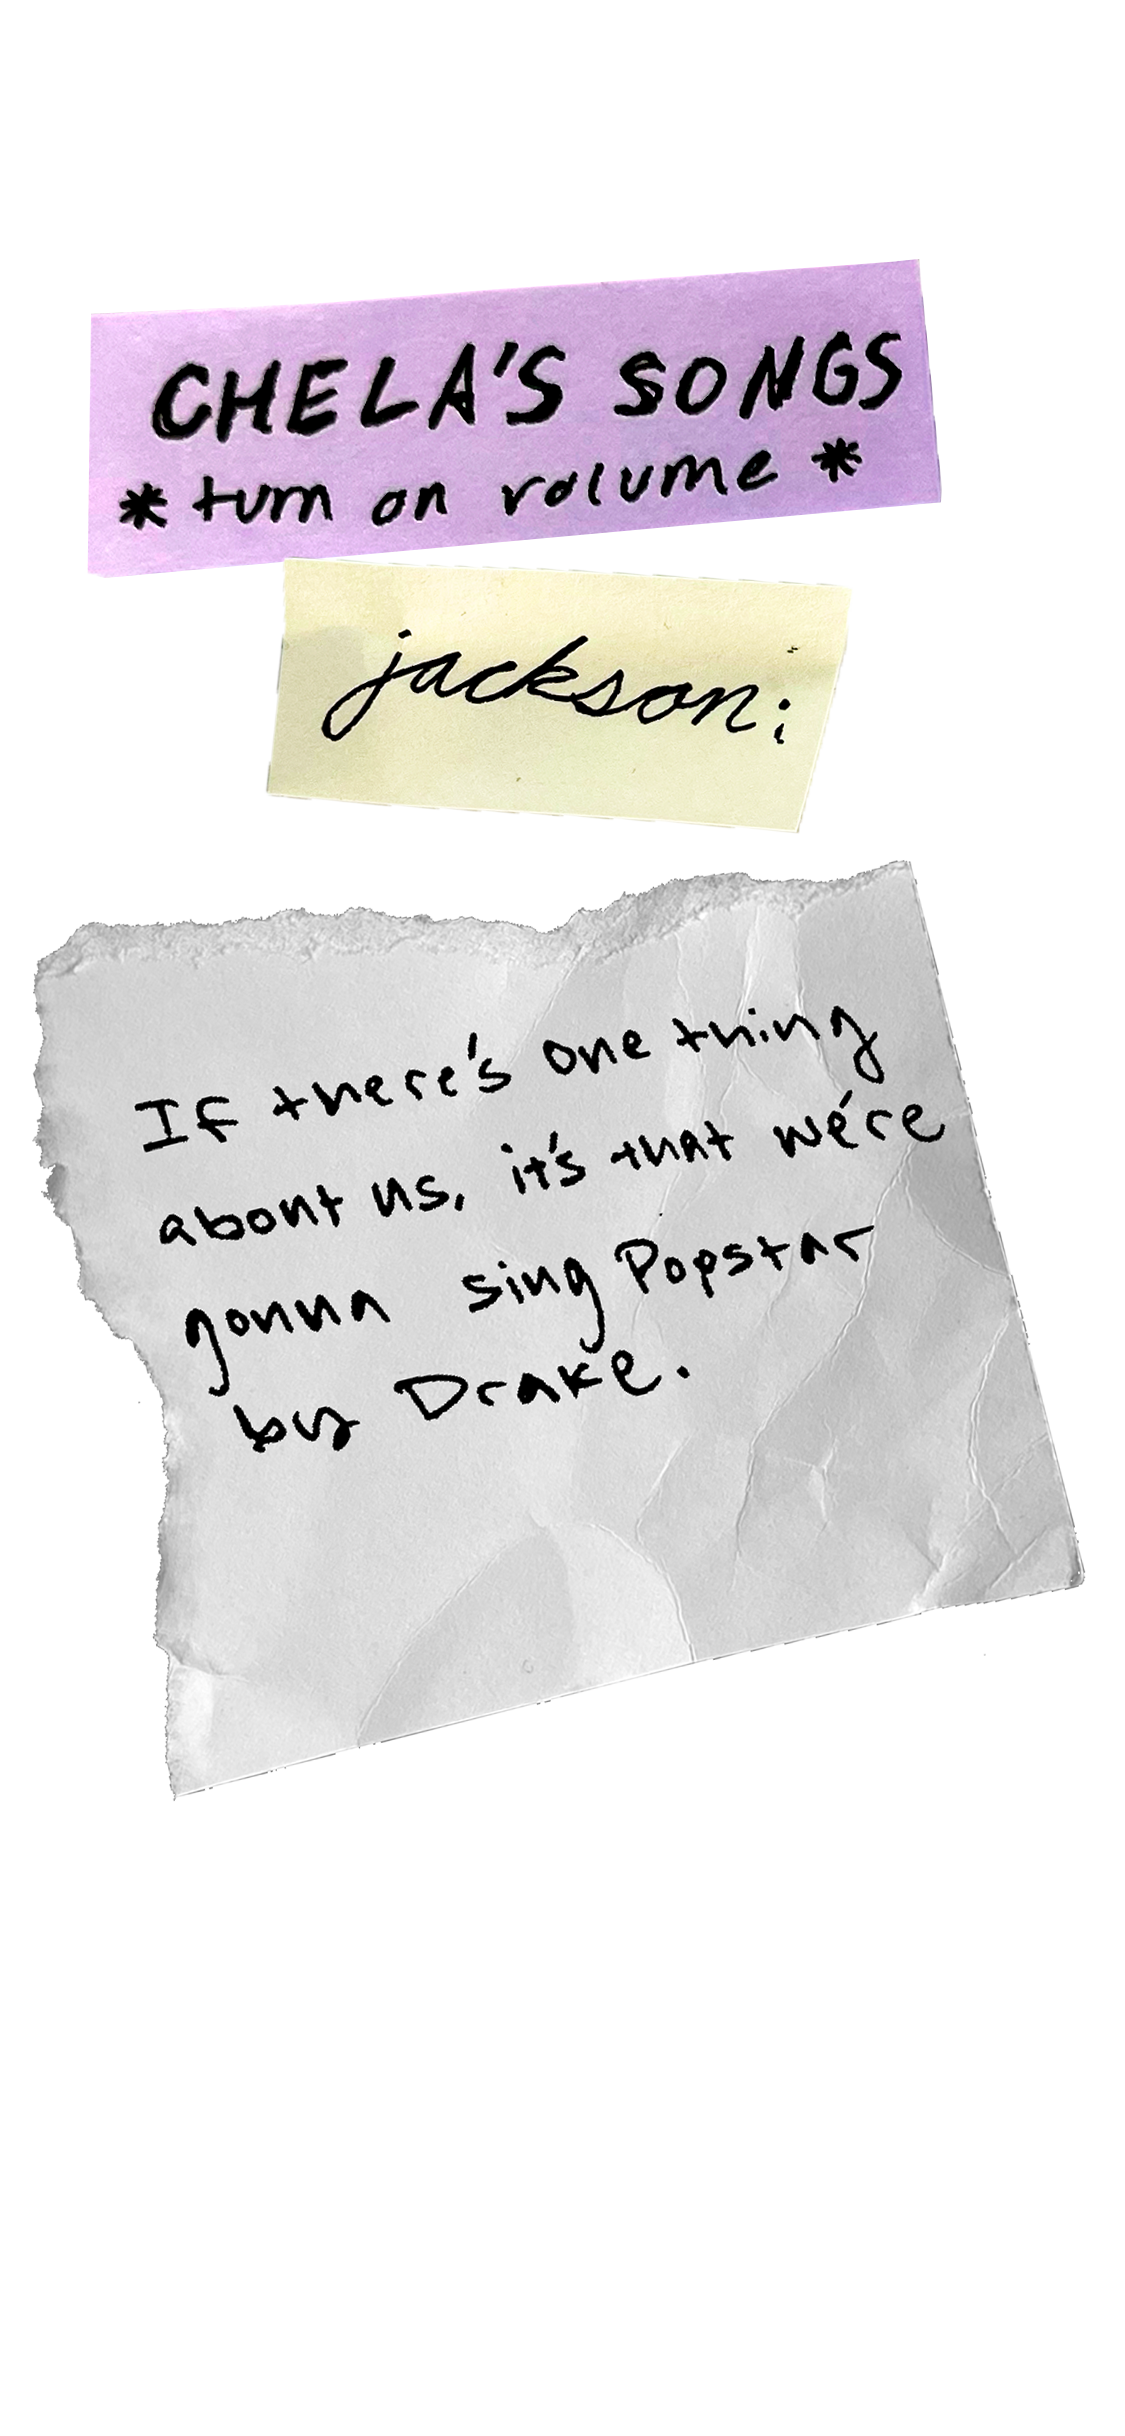 CHELA'S SONGS
* turn on volume *
jackson:
If there's one thing
about us, it's that we're
gonna sing Popstar
by Drake.